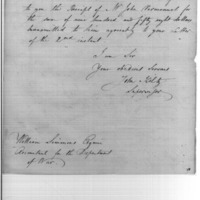 to you the Receipt of Mr John
the sum of one hundred and fifty eight dollars
transmitted to him agreeably to your letter
of the 2nd instant
I am Sir
Your obedient Servant
John
William Simmons Esquire
Accountant to the Department
of War